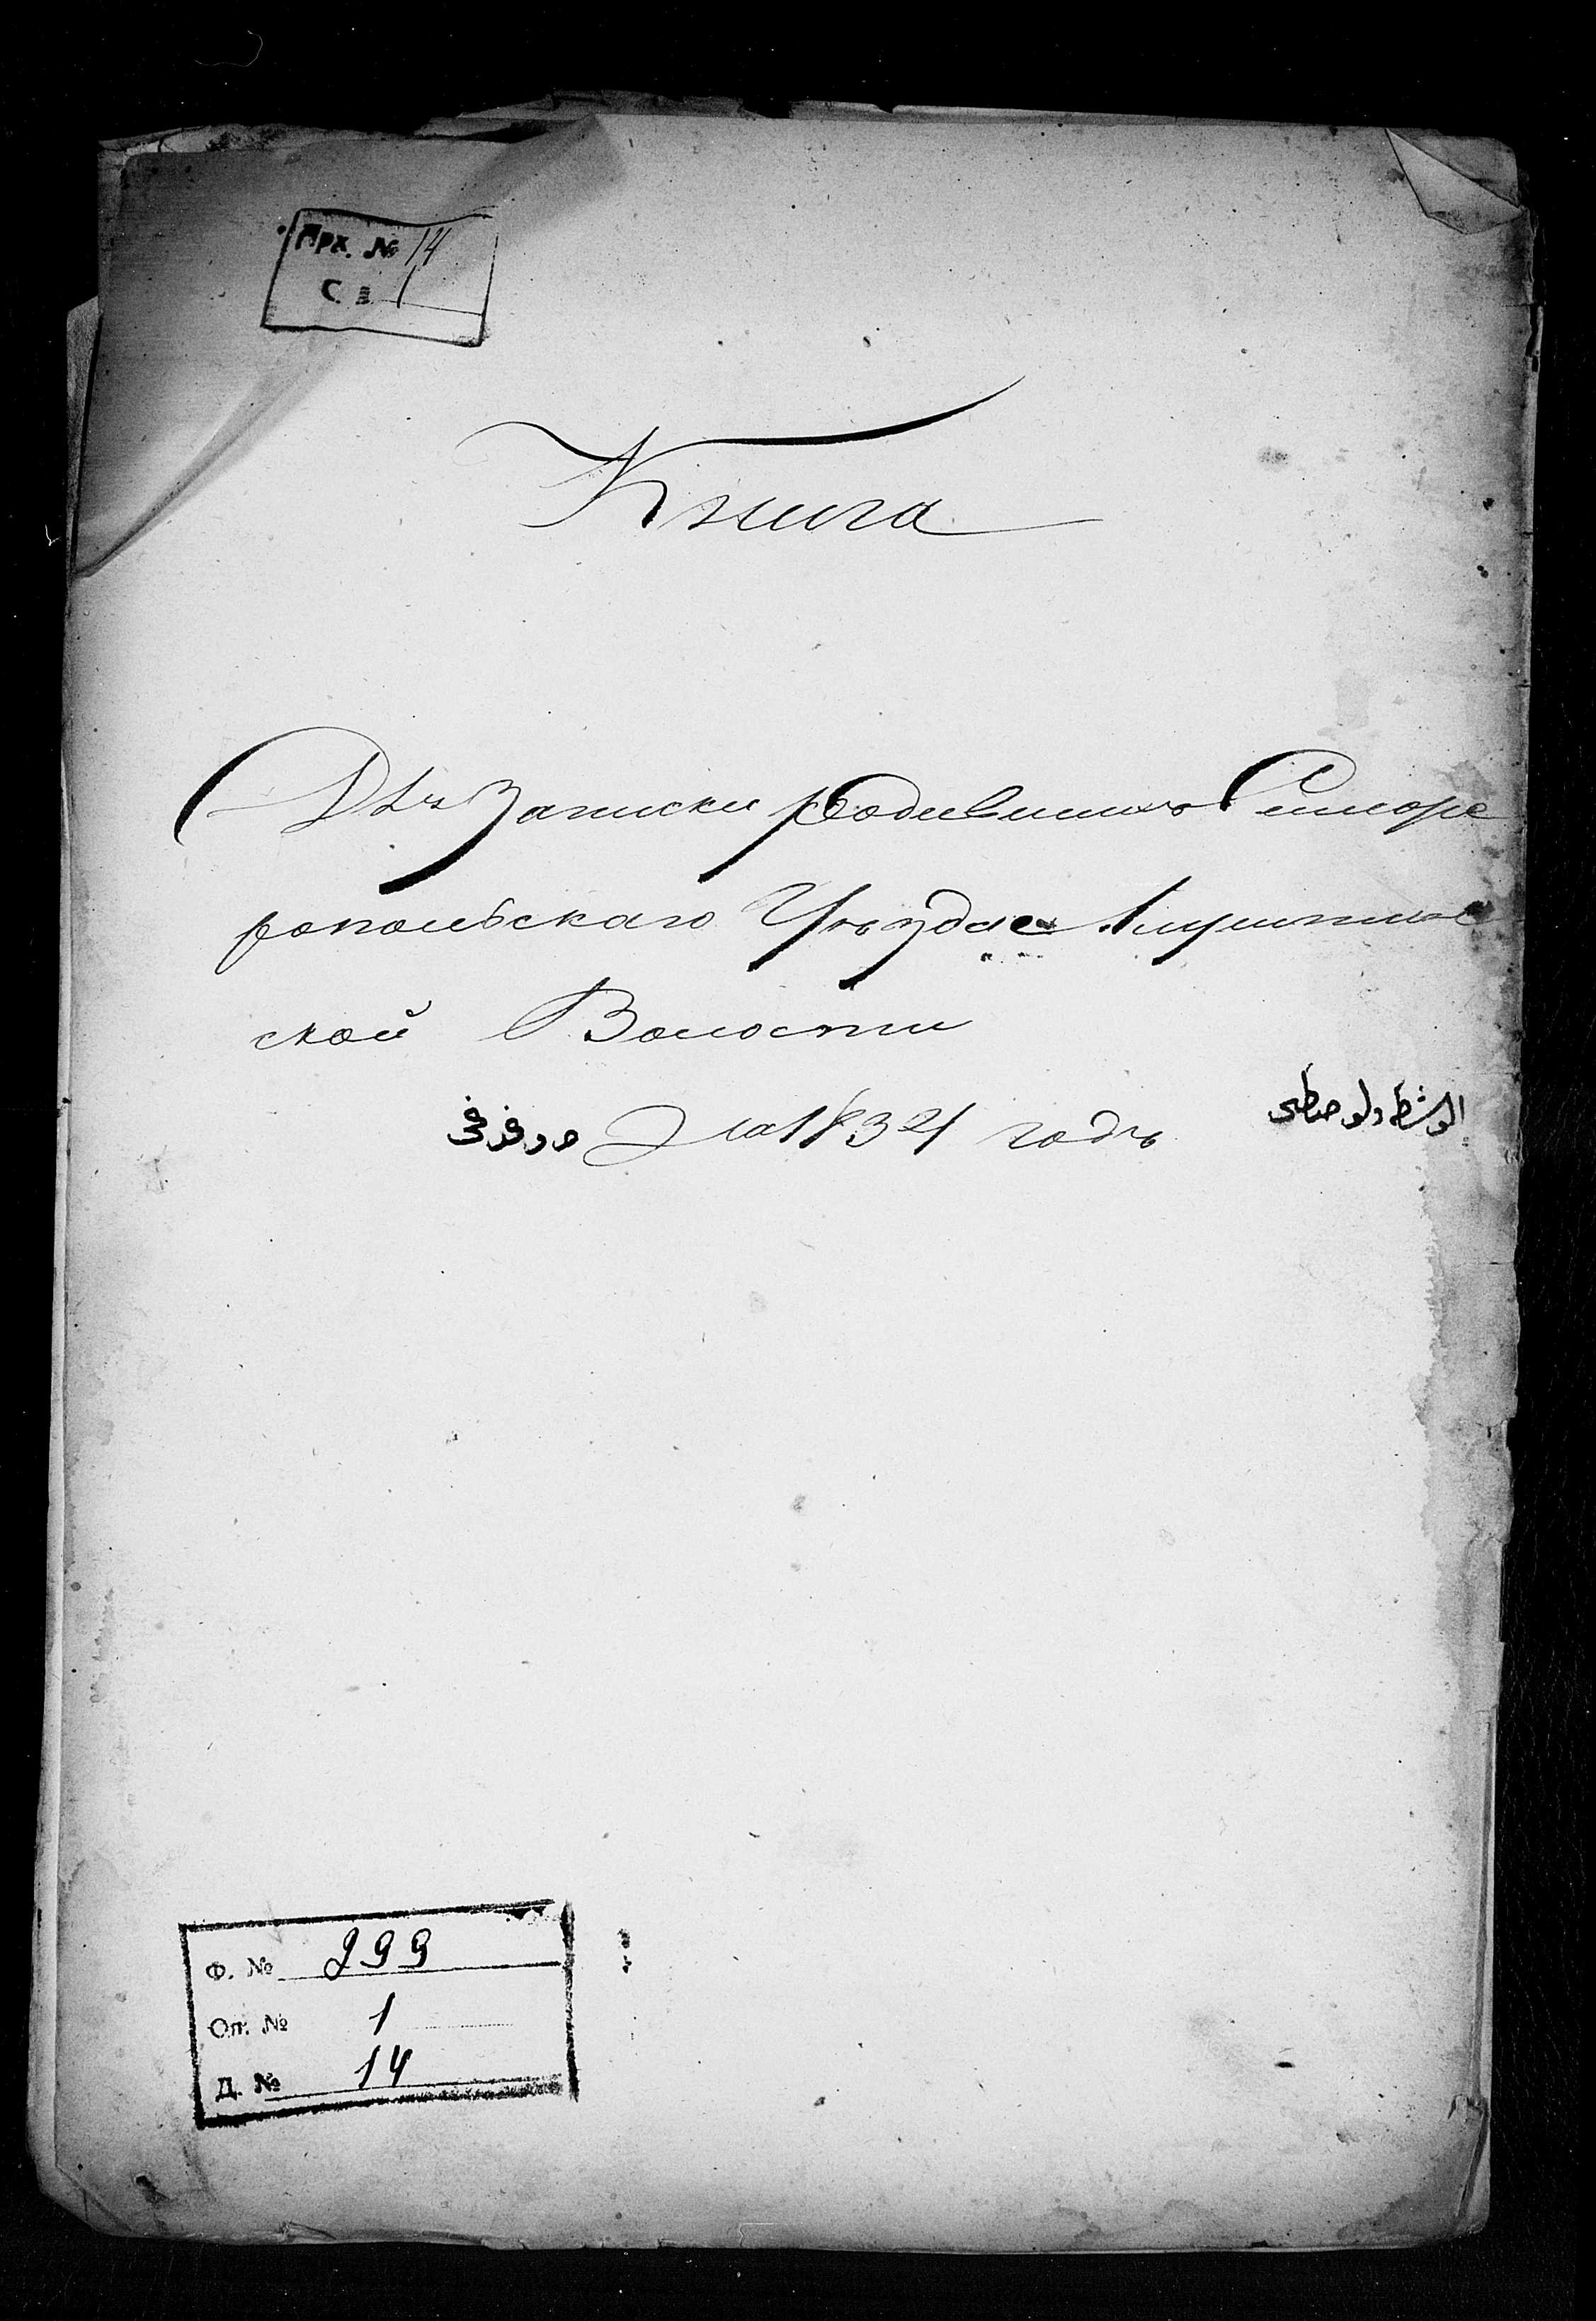 Арх. № 14
Св. 1
Книга
Для Записки Родившихся Симфе
ропольскаго Уѣзда Алуштин
ской Волости
на 1834 годъ
Ф. № 299
Оп. № 1
Д. № 14